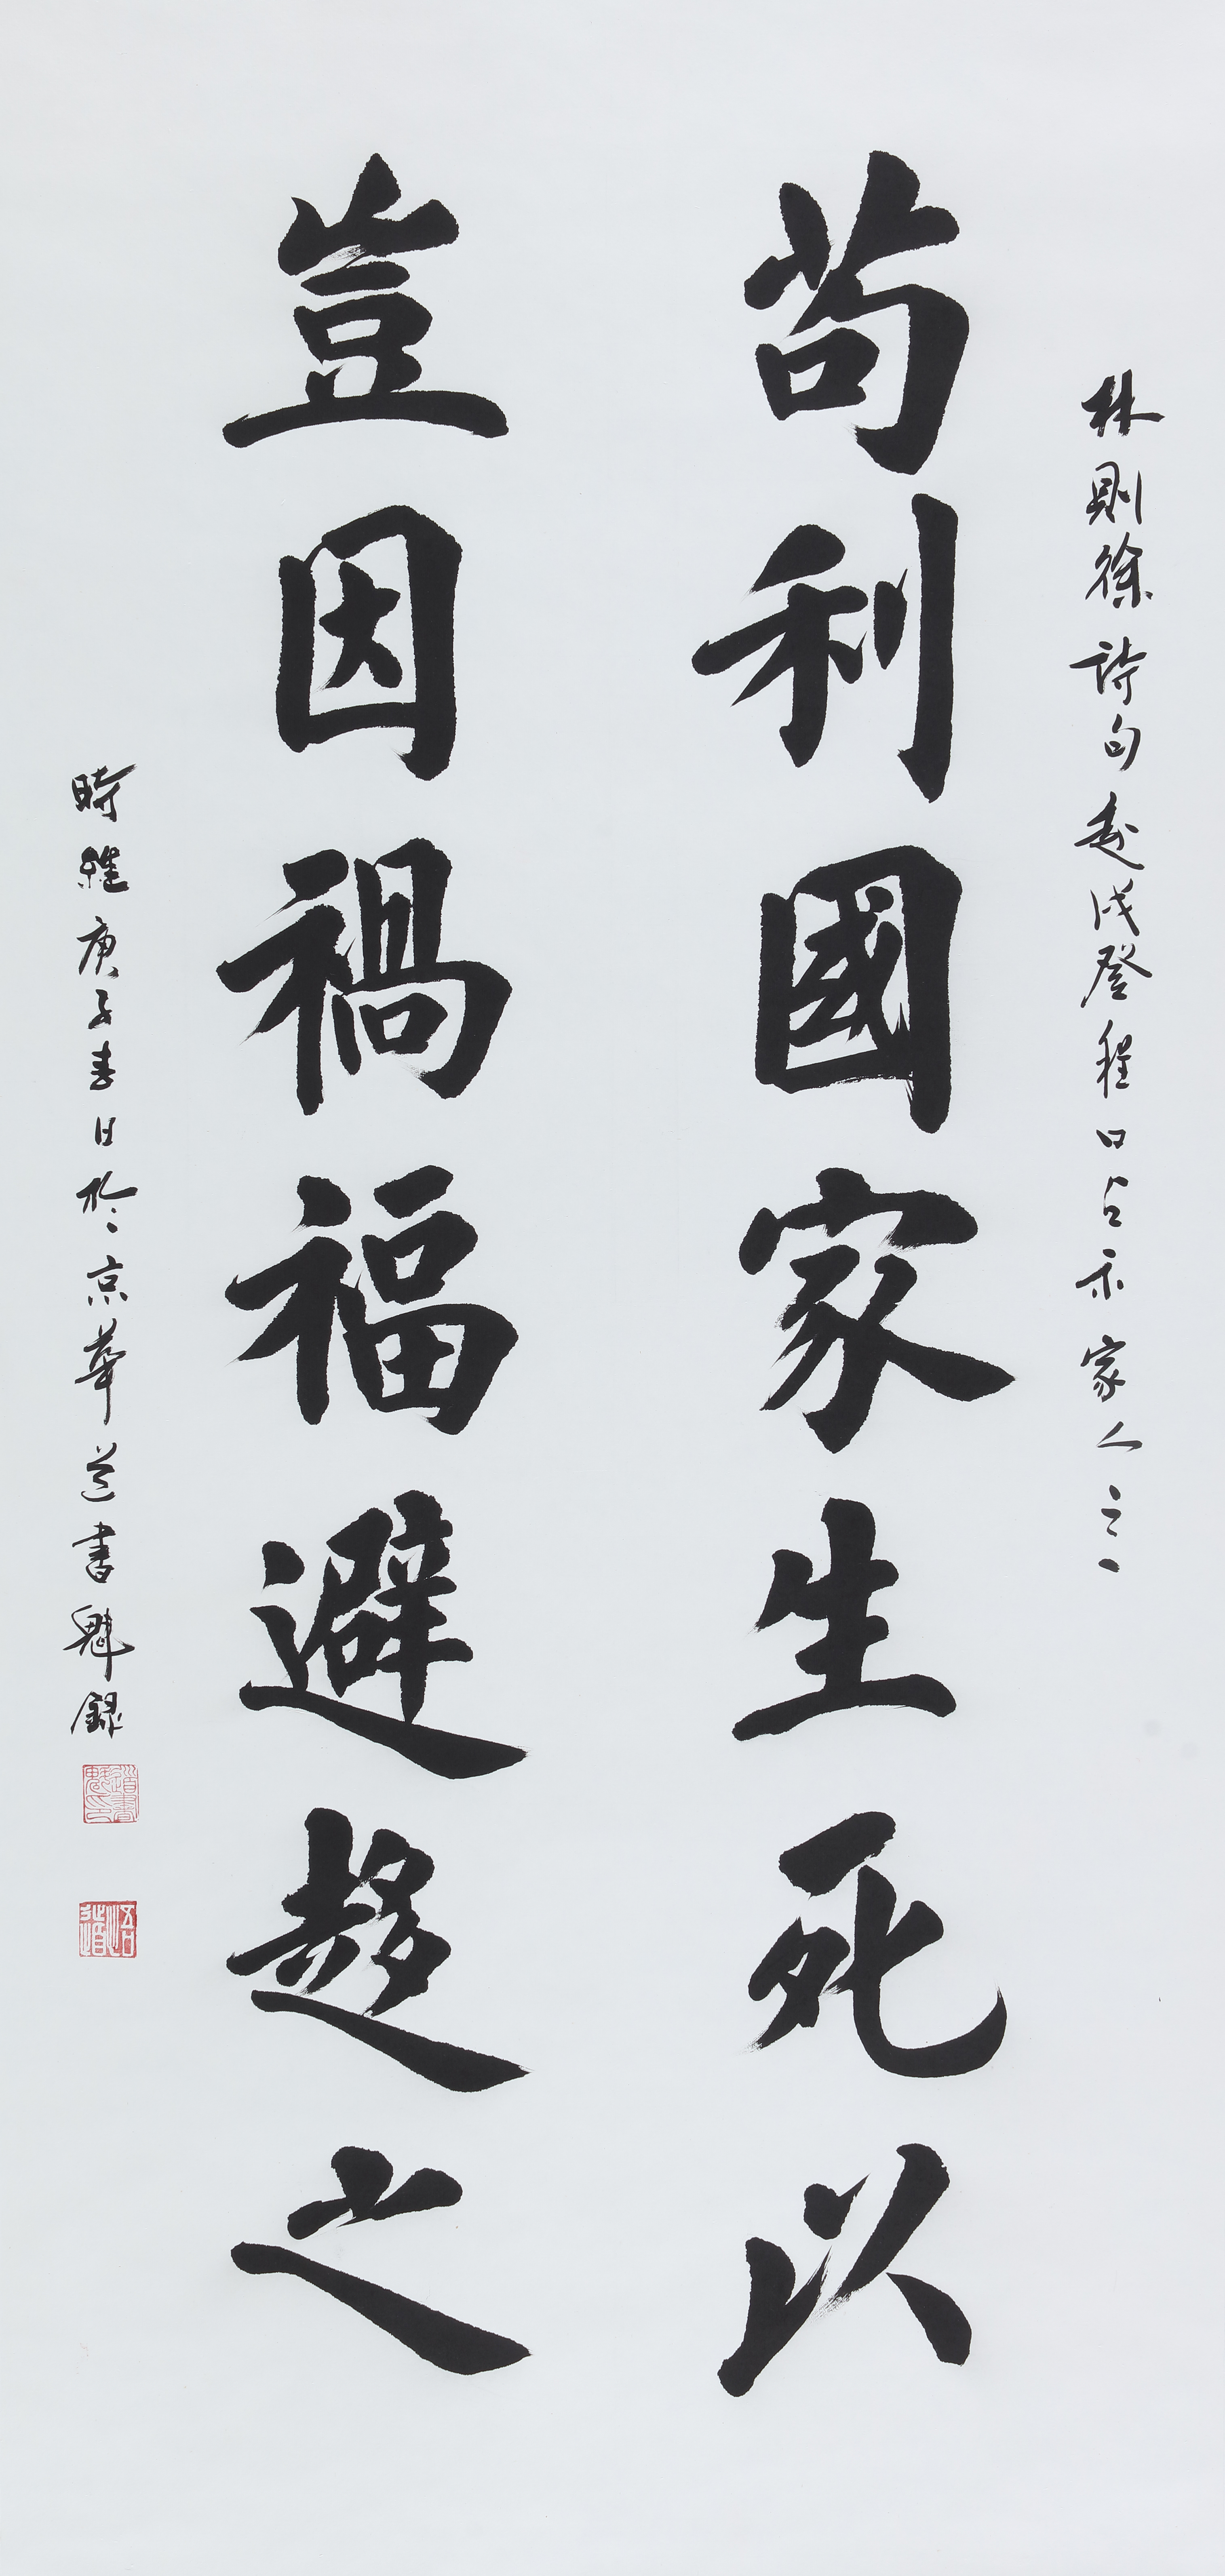 林則徐詩句赴戍登程口占示家人之一
苟利國家生死以
豈因禍福避趨之
時維庚子春日於京華道書魁錄
道書魁印
悟道